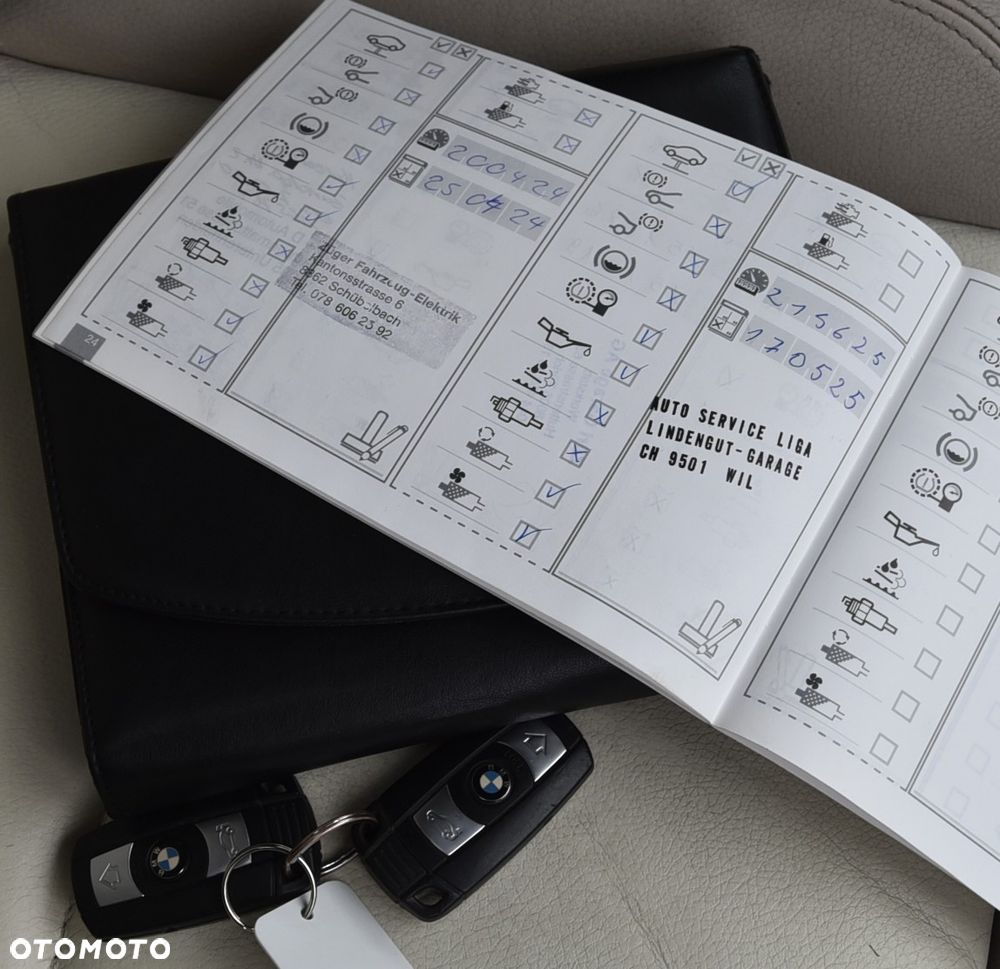 200424
25 04 24
Züger Fahrzeug-Elektrik
Kantonsstrasse 6
8862 Schübelbach
Tel. 078 606 23 92
24
215625
170525
AUTO SERVICE LIGA
LINDENGUT-GARAGE
CH 9501 WIL
BMW
BMW
OTOMOTO